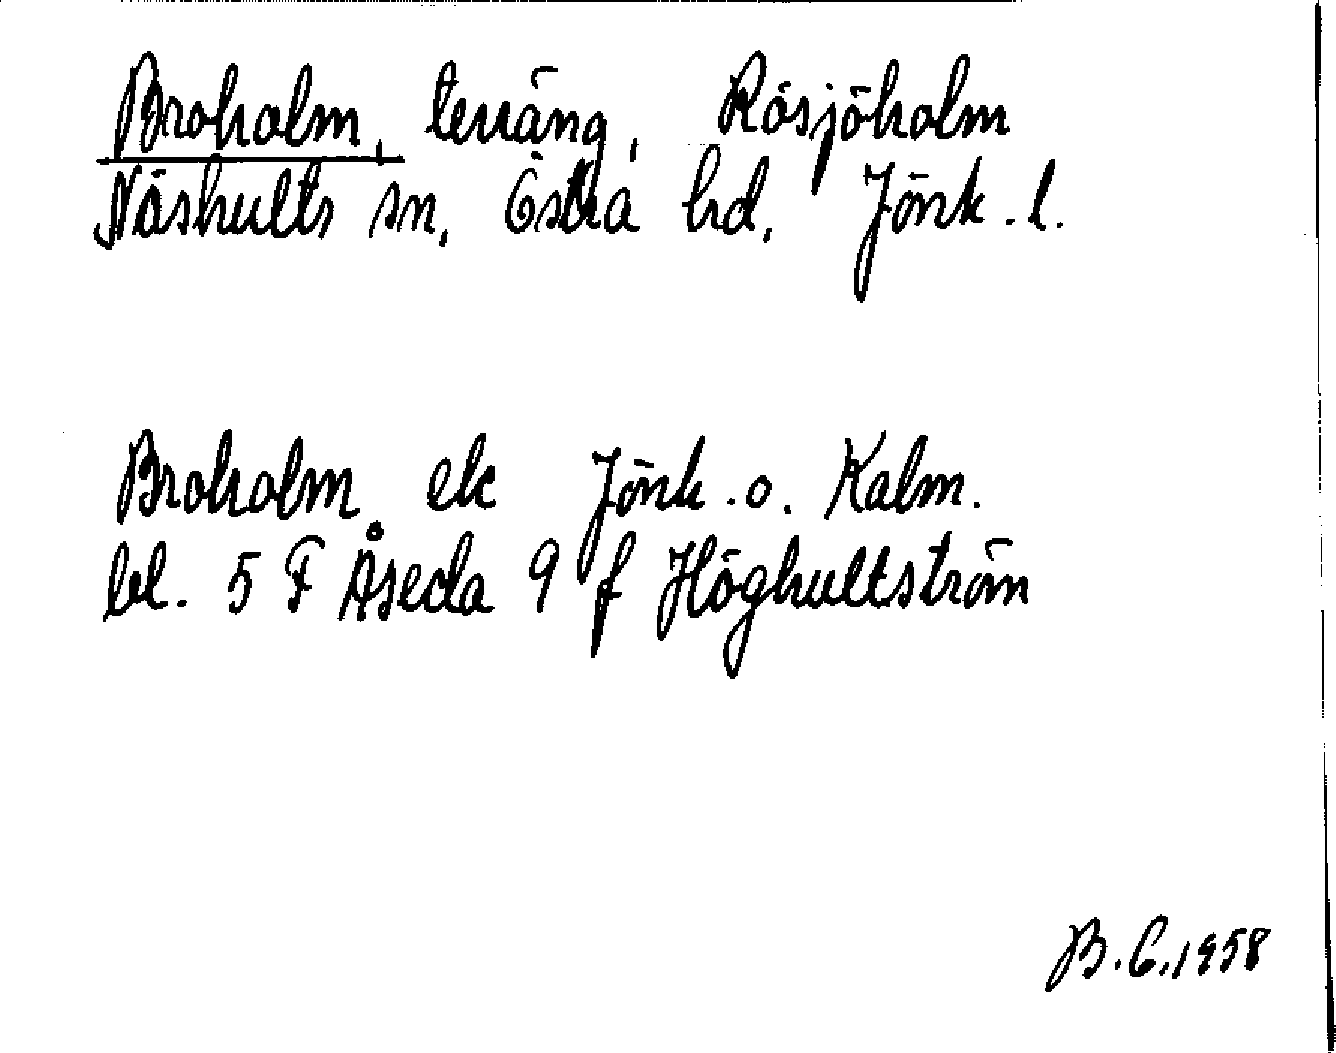 Broholm, terräng, Rösjöholm
Näshults sn, Östra hd, Jönk. l.
Broholm ek Jönk. o. Kalm.
bl. 5 F Åseda 9 f Höghultström
B. E. 1958